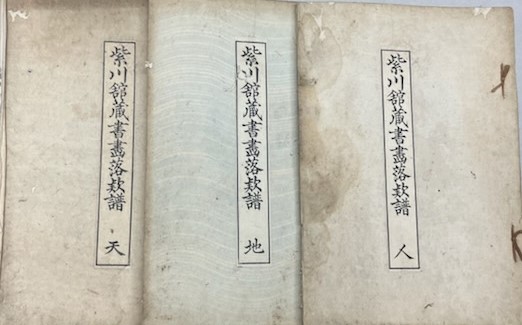 紫川舘藏書畫落款譜 天
紫川舘藏書畫落款譜 地
紫川舘藏書畫落款譜 人